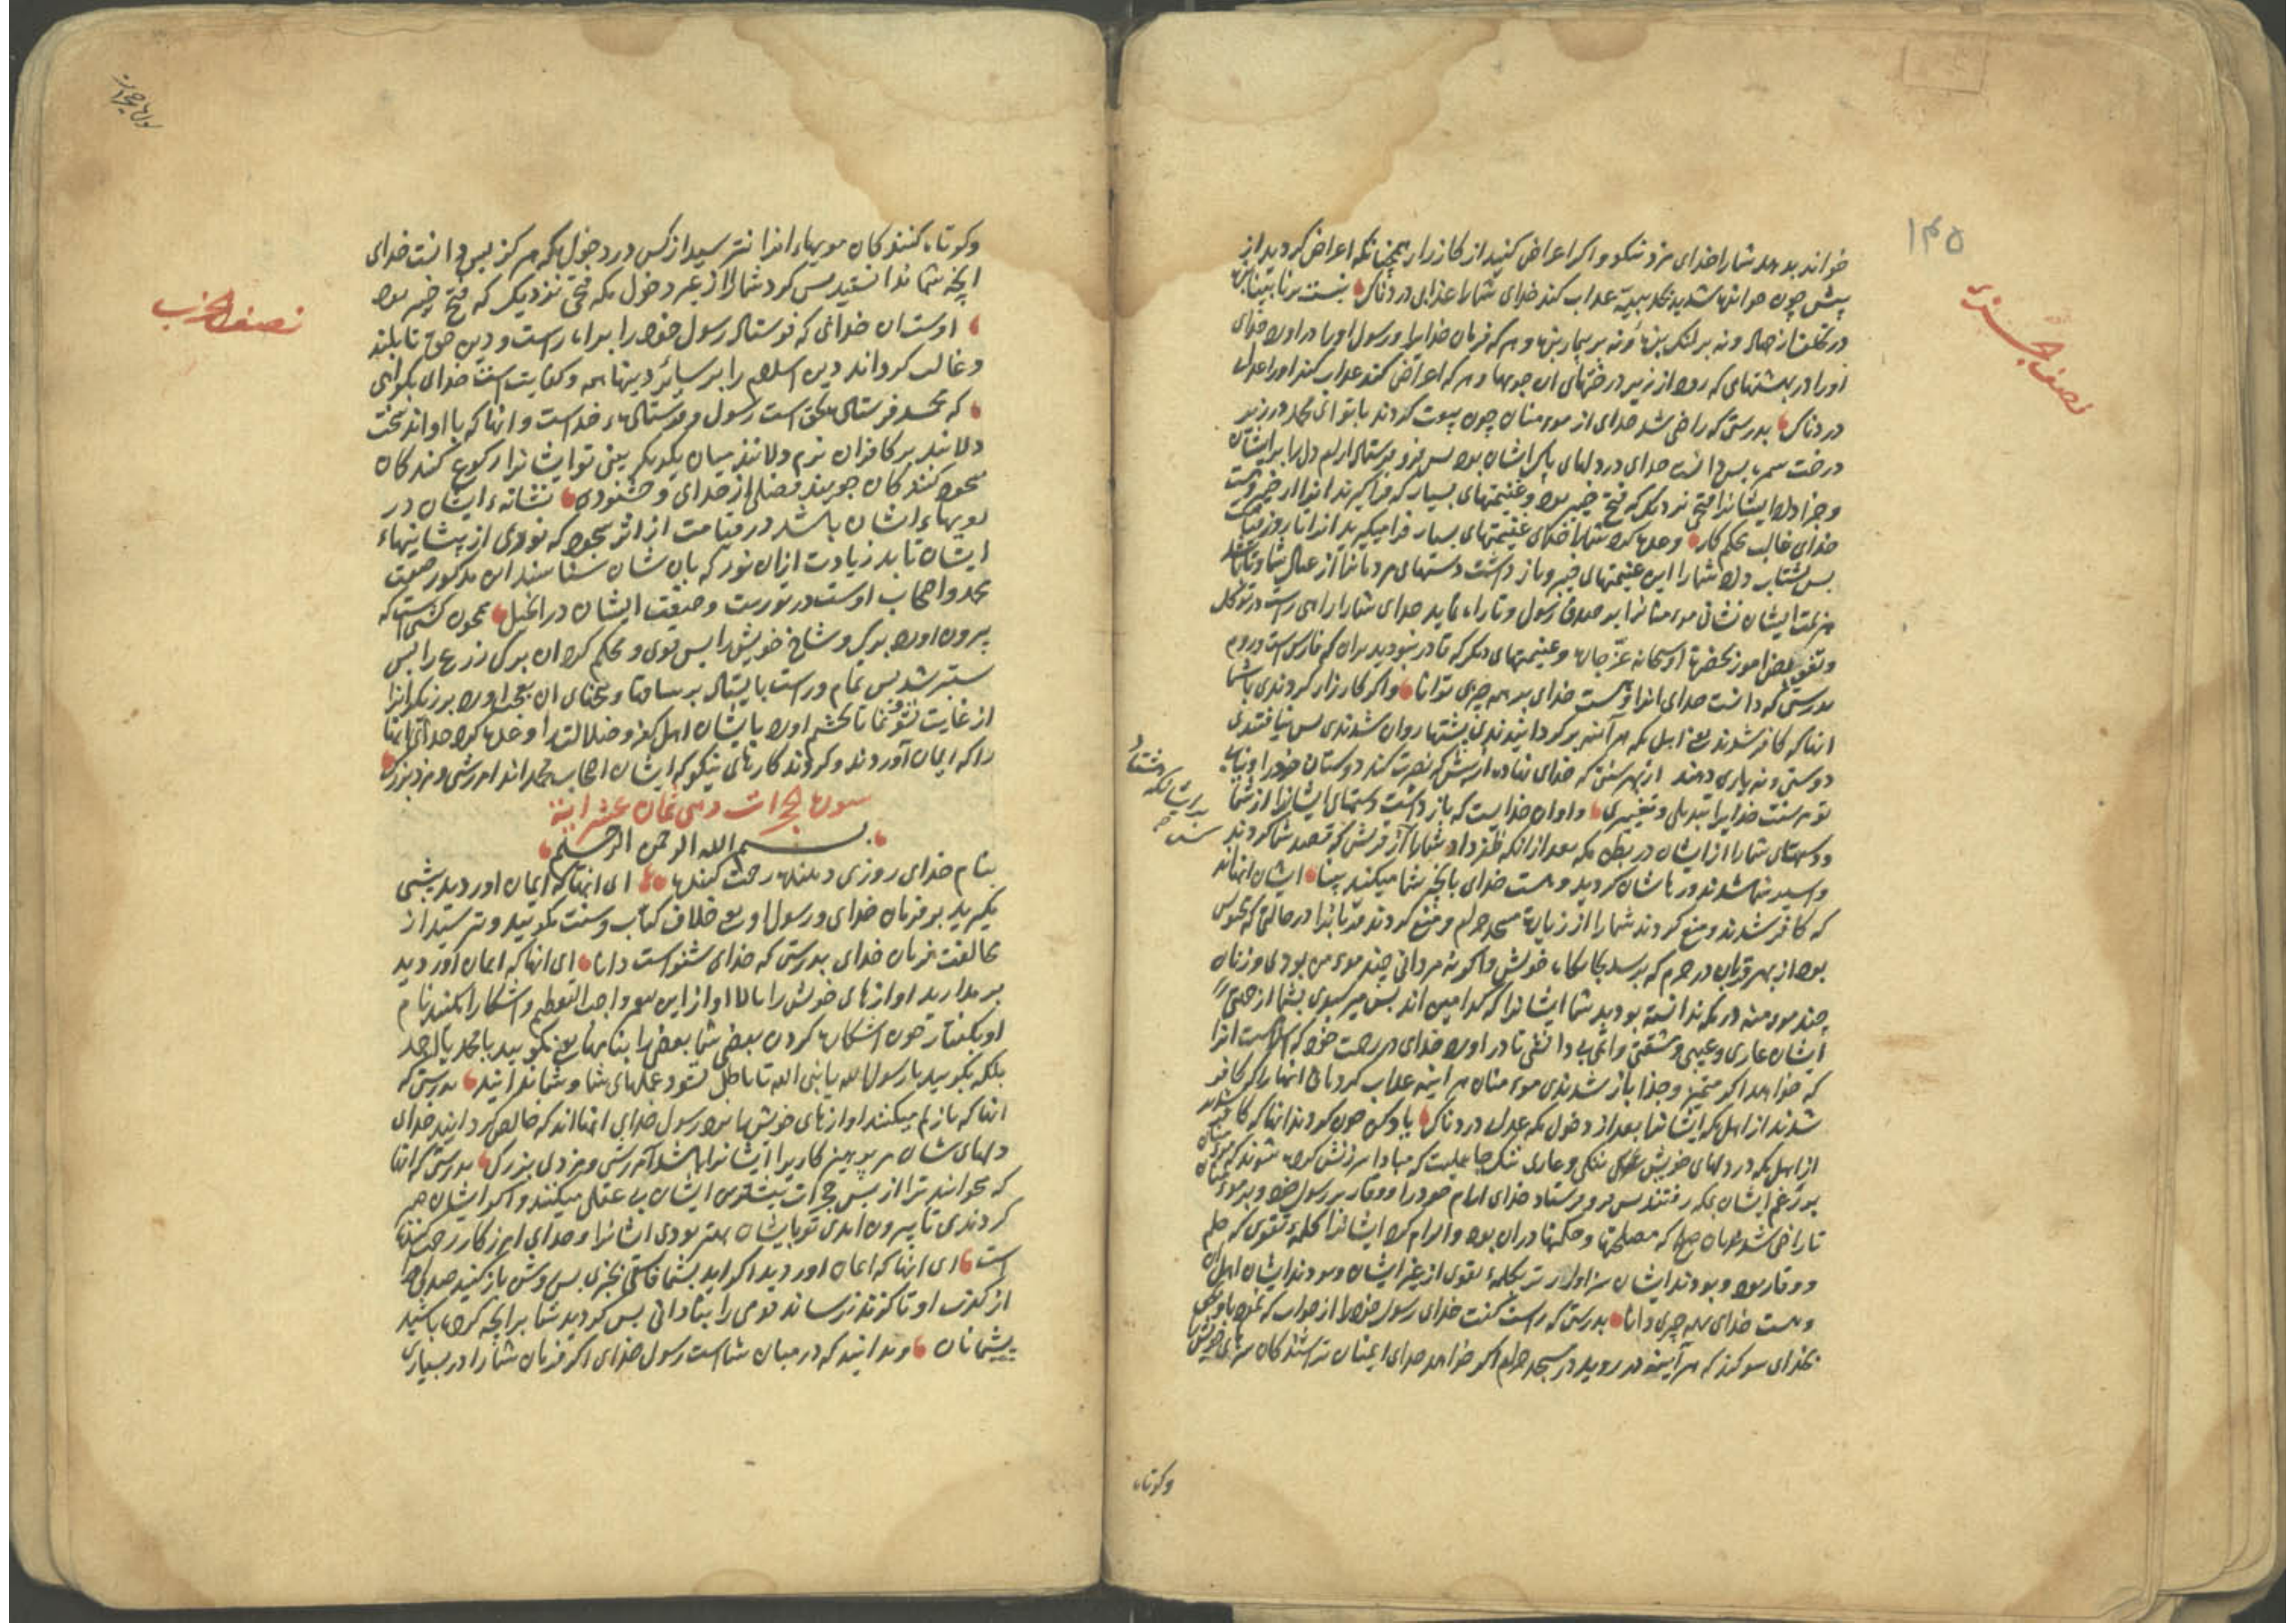 ۱۴۵
نصف الجزء
خواند بدهد شما را خدای مزد نیکو و اگر اعراض کنید از کارزار همچنانکه اعراض کردید از
پیش چون خوانده شدید بحدیبیه عذاب کند خدای شما را عذابی دردناک نیست بر نابینایان
در تخلف از جهاد و نه بر لنک و نه بر بیمار و هر که فرمان خدایرا و رسول اورا در اورد خدای
اورا در بهشتهای که رود از زیر درختهای ان جویها و هر که اعراض کند عذاب کند اورا عذاب
دردناک بدرستی که راضی شد خدای از مومنان چون بیعت کردند با تو ای محمد در زیر
درخت سمره بس دانست خدای در دلهای پاک اشان بود بس فرو فرستاد ارام دل را بر ایشان
و جزا داد ایشانرا فتحی نزدیک که فتح خیبر بود و غنیمتهای بسیار که فرا گیرند انرا از خیبر و هست
خدای غالب محکم کار وعده کرد شما را خدای غنیمتهای بسیار فرا میگیرید انرا تا روز قیامت
بس بشتاب داد شما را این غنیمتهای خیبر و باز داشت دستهای مردمانرا از عیال شما و تا باشد
هزیمت ایشان نشانی مومنانرا بر صدق رسول و تا راه نماید خدای شما را راهی راست در توکل
و تفویض امور بحضرت او سبحانه عز جلاله و غنیمتهای دیگر که قادر نبودید بران که فارس است و روم
بدرستی که دانست خدای انرا و هست خدای بر همه چیزی توانا و اگر کارزار کردندی با شما
انها که کافر شدند یعنی اهل مکه هر آینه بر گردانیدندی پشتها روان شدندی بس نیافتندی
دوستی و نه یاری دهند از بهر سنتی که خدای نهاده از پیش که نصرت کند دوستان خود را و نیابی
تو مر سنت خدایرا تبدیلی و تغییری و او ان خدایست که باز داشت دستهای ایشانرا از شما
و دستهای شما را از ایشان در بطن مکه بعد از انکه ظفر داد شما را از قریش که قصد شما کردند
و اسیر شما شدند و رهاشان کردید و هست خدای بانچه شما میکنید بینا ایشان انهااند
که کافر شدند و منع کردند شما را از زیارت مسجد حرام و منع کردند قربانرا در حالتی که محبوس
بود از بهر قربان در حرم که برسد بجایگاه خویش و اگر نه مردانی چند مومن بودی و زنان
چند مومنه در مکه ندانسته بودید شما ایشانرا که کدامین اند بس میرسیدی بشما از جهة
ایشان عاری و عیبی و مشقتی و اثمی بی دانشی تا در اورد خدای در رحمت خود که اسلام است انرا
که خواهد اگر متمیز و جدا باز شدندی مومنان هر اینه عذاب کردمانی انها را که کافر
شدند از اهل مکه ایشانرا بعد از دخول مکه عذاب دردناک یاد کن چون کردند انها که کافر شدند
از اهل مکه در دلهای خویش ننکی و عاری ننک جاهلیت که مبادا سرزنش کرده شوند که مومنان
بر زغم ایشان بمکه رفتند بس فرو فرستاد خدای ارام خود را و وقار بر رسول خود و بر مومنان
تا راضی شدند بان صلح که مصلحتها و حکمتها در ان بود و الزام کرد ایشانرا کلمهٔ تقوی که حلم
و وقار بود و بودند ایشان سزاوارتر بکلمهٔ تقوی از غیر ایشان و بودند ایشان اهل ان
و هست خدای بهمه چیزی دانا بدرستی که راست گفت خدای رسول خود را از خواب که نمود باو بحق
بخدای سوگند که هر آینه در روید در مسجد حرام اگر خواهد خدای ایمنان تراشندگان سرهای خویش
وکوتاه
سورة حجرات
نصف الحزب
و کوتاه کنندکان مویهاء انرا نترسید از کس در دخول مکه هرگز بس دانست خدای
انچه شما ندانستید بس کرد شما را از غیر دخول مکه فتحی نزدیک که فتح خیبر بود
اوست ان خدائی که فرستاد رسول خود را براه راست و دین حق تا بلند
و غالب گرداند دین اسلام را بر سائر دینها همه و کفایت است خدای بگواهی
که محمد فرستاده بحق است رسول و فرستادهء خداست و انها که با او اند سخت
دلانند بر کافران نرم دلانند میان یکدیگر بینی تو ایشانرا رکوع کنندکان
سجود کنندکان جویند فضلی از خدای و خشنودی نشانهء ایشان در
رویهاء اشان باشد در قیامت از اثر سجود که نوری از پشانیهاء
ایشان تابد زیادت ازان نور که بان شان شناسند این مذکور صفت
محمد و اصحاب اوست در توریت و صفت ایشان در انجیل همچون کشتی است که
بیرون اورد برگ و شاخ خویش را بس قوی و محکم کرد ان برگ زرع را بس
ستبر شد بس تمام و راست بایستاد بر ساقها و بیخهای ان بعجب اورد برزیگرانرا
از غایت نشو و نما تا بخشم اورد بایشان اهل کفر و ضلالت را وعده کرد خدای انها
را که ایمان آوردند و کردند کارهای نیکو که ایشان اصحاب محمد اند امرزشی و مزد بزرگ
سورة الحجرات وهی ثمان عشر ایة
بسم الله الرحمن الرحیم
بنام خدای روزی دهنده رحمت کننده ای انها که ایمان اوردید پیشی
مگیرید بر فرمان خدای و رسول او یعنی خلاف کتاب و سنت مگویید و ترسید از
مخالفت فرمان خدای بدرستی که خدای شنواست دانا ای انها که ایمان آوردید
برمدارید اوازهای خویش را بالا اواز این پیغمبر واجب التعظیم و اشکارا مکنید نام
او بگفتار چون اشکارا کردن بعضی شما بعضی را بنامها یعنی مگویید یا محمد یا احمد
بلکه بگویید یا رسول الله یا نبی الله تا باطل نشود عملهای شما و شما ندانید بدرستی که
انها که باز کم میکنند اوازهای خویش را نزد رسول خدای انهااند که خالص گردانید خدای
دلهای شان مر پرهیزکاری را ایشانرا باشد آمرزشی و مزدی بزرگ بدرستی که انها
که بخوانند ترا از بس حجرات بیشترین ایشان بی عقلی میکنند و اگر ایشان صبر
کردندی تا بیرون امدی تو بایشان بهتر بودی اشانرا و خدای امرزکار رحمت کننده
است ای انها که ایمان اوردید اگر اید بشما فاسقی بخبری بس روشن باز کنید صدق خبر
از کذب او تا گزند نرساند قومی را بنادانی بس گردید شما بر انچه کرده باشید
پشیمانان و بدانید که در میان شماست رسول خدای اگر فرمان شما را در بسیاری